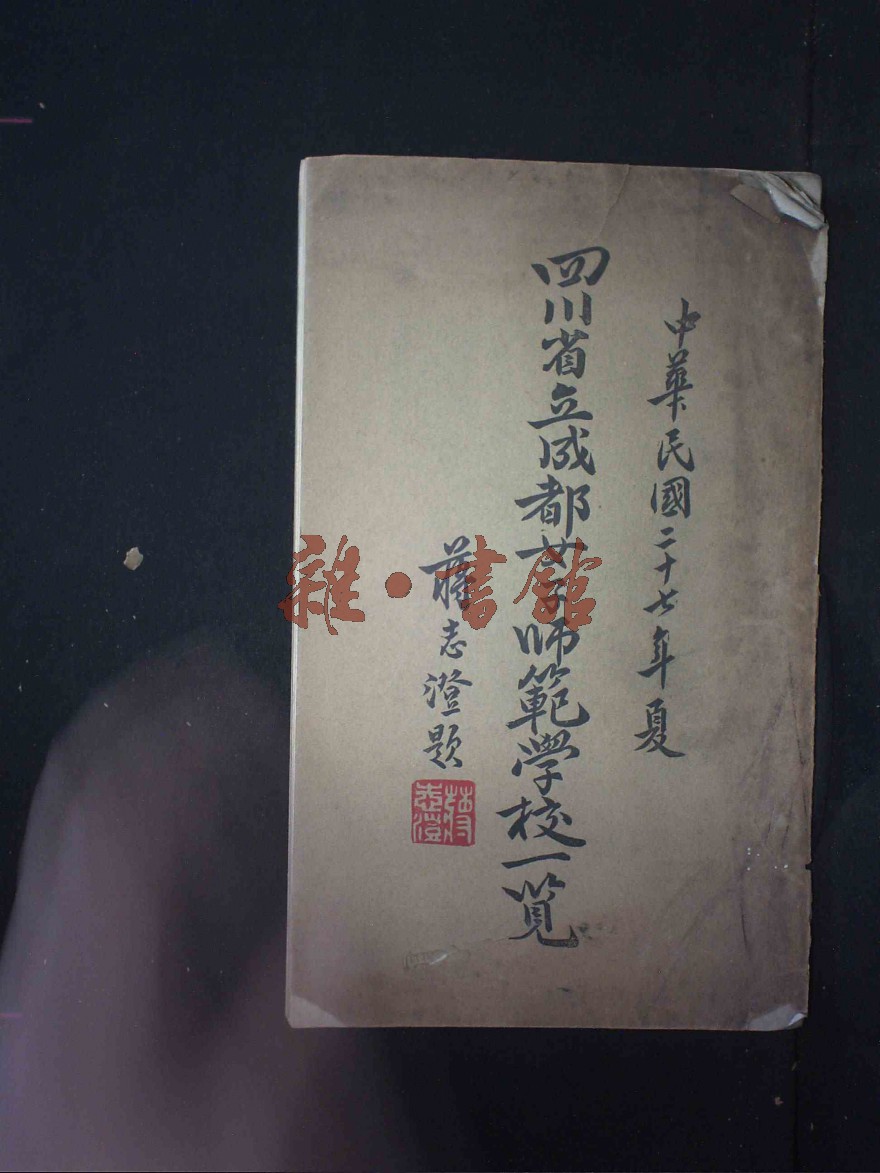 中華民國二十七年夏
四川省立成都女子師範學校一覽
蔣志澄題
蔣志澄
雜·書館